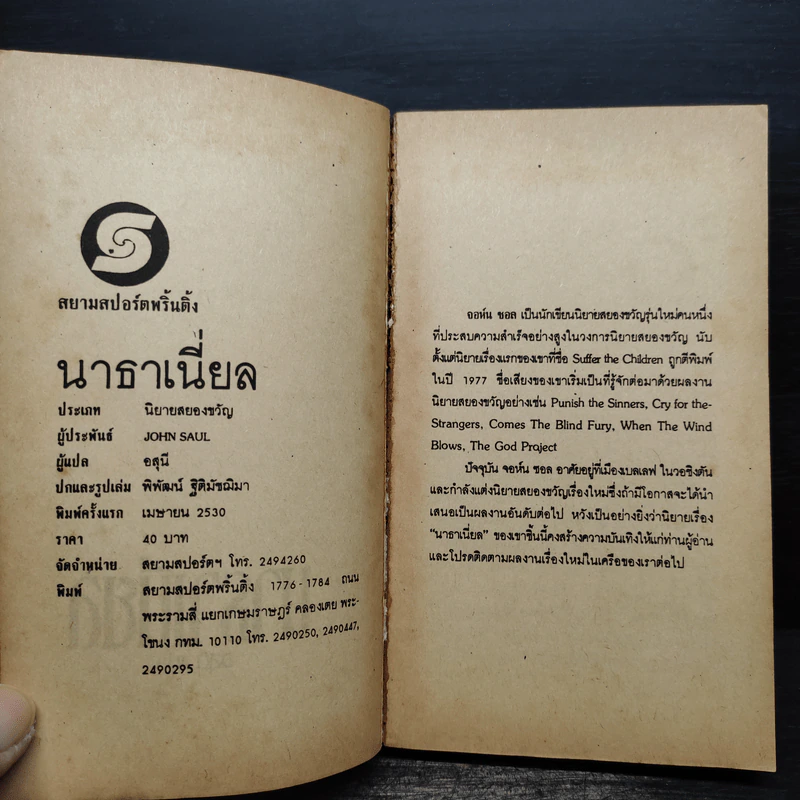 สยามสปอร์ตพริ้นติ้ง
นาธาเนี่ยล
ประเภท นิยายสยองขวัญ
ผู้ประพันธ์ JOHN SAUL
ผู้แปล อสุนี
ปกและรูปเล่ม พิพัฒน์ ฐิติมัชฌิมา
พิมพ์ครั้งแรก เมษายน 2530
ราคา 40 บาท
จัดจำหน่าย สยามสปอร์ตฯ โทร. 2494260
พิมพ์ สยามสปอร์ตพริ้นติ้ง 1776-1784 ถนน
พระรามสี่ แยกเกษมราษฎร์ คลองเตย พระ-
โขนง กทม. 10110 โทร. 2490250, 2490447,
2490295
จอห์น ซอล เป็นนักเขียนนิยายสยองขวัญรุ่นใหม่คนหนึ่ง
ที่ประสบความสำเร็จอย่างสูงในวงการนิยายสยองขวัญ นับ
ตั้งแต่นิยายเรื่องแรกของเขาที่ชื่อ Suffer the Children ถูกตีพิมพ์
ในปี 1977 ชื่อเสียงของเขาเริ่มเป็นที่รู้จักต่อมาด้วยผลงาน
นิยายสยองขวัญอย่างเช่น Punish the Sinners, Cry for the-
Strangers, Comes The Blind Fury, When The Wind
Blows, The God Project
ปัจจุบัน จอห์น ซอล อาศัยอยู่ที่เมืองเบลเลฟ ในวอชิงตัน
และกำลังแต่งนิยายสยองขวัญเรื่องใหม่ซึ่งถ้ามีโอกาสจะได้นำ
เสนอเป็นผลงานอันดับต่อไป หวังเป็นอย่างยิ่งว่านิยายเรื่อง
"นาธาเนี่ยล" ของเขาชิ้นนี้คงสร้างความบันเทิงให้แก่ท่านผู้อ่าน
และโปรดติดตามผลงานเรื่องใหม่ในเครือของเราต่อไป